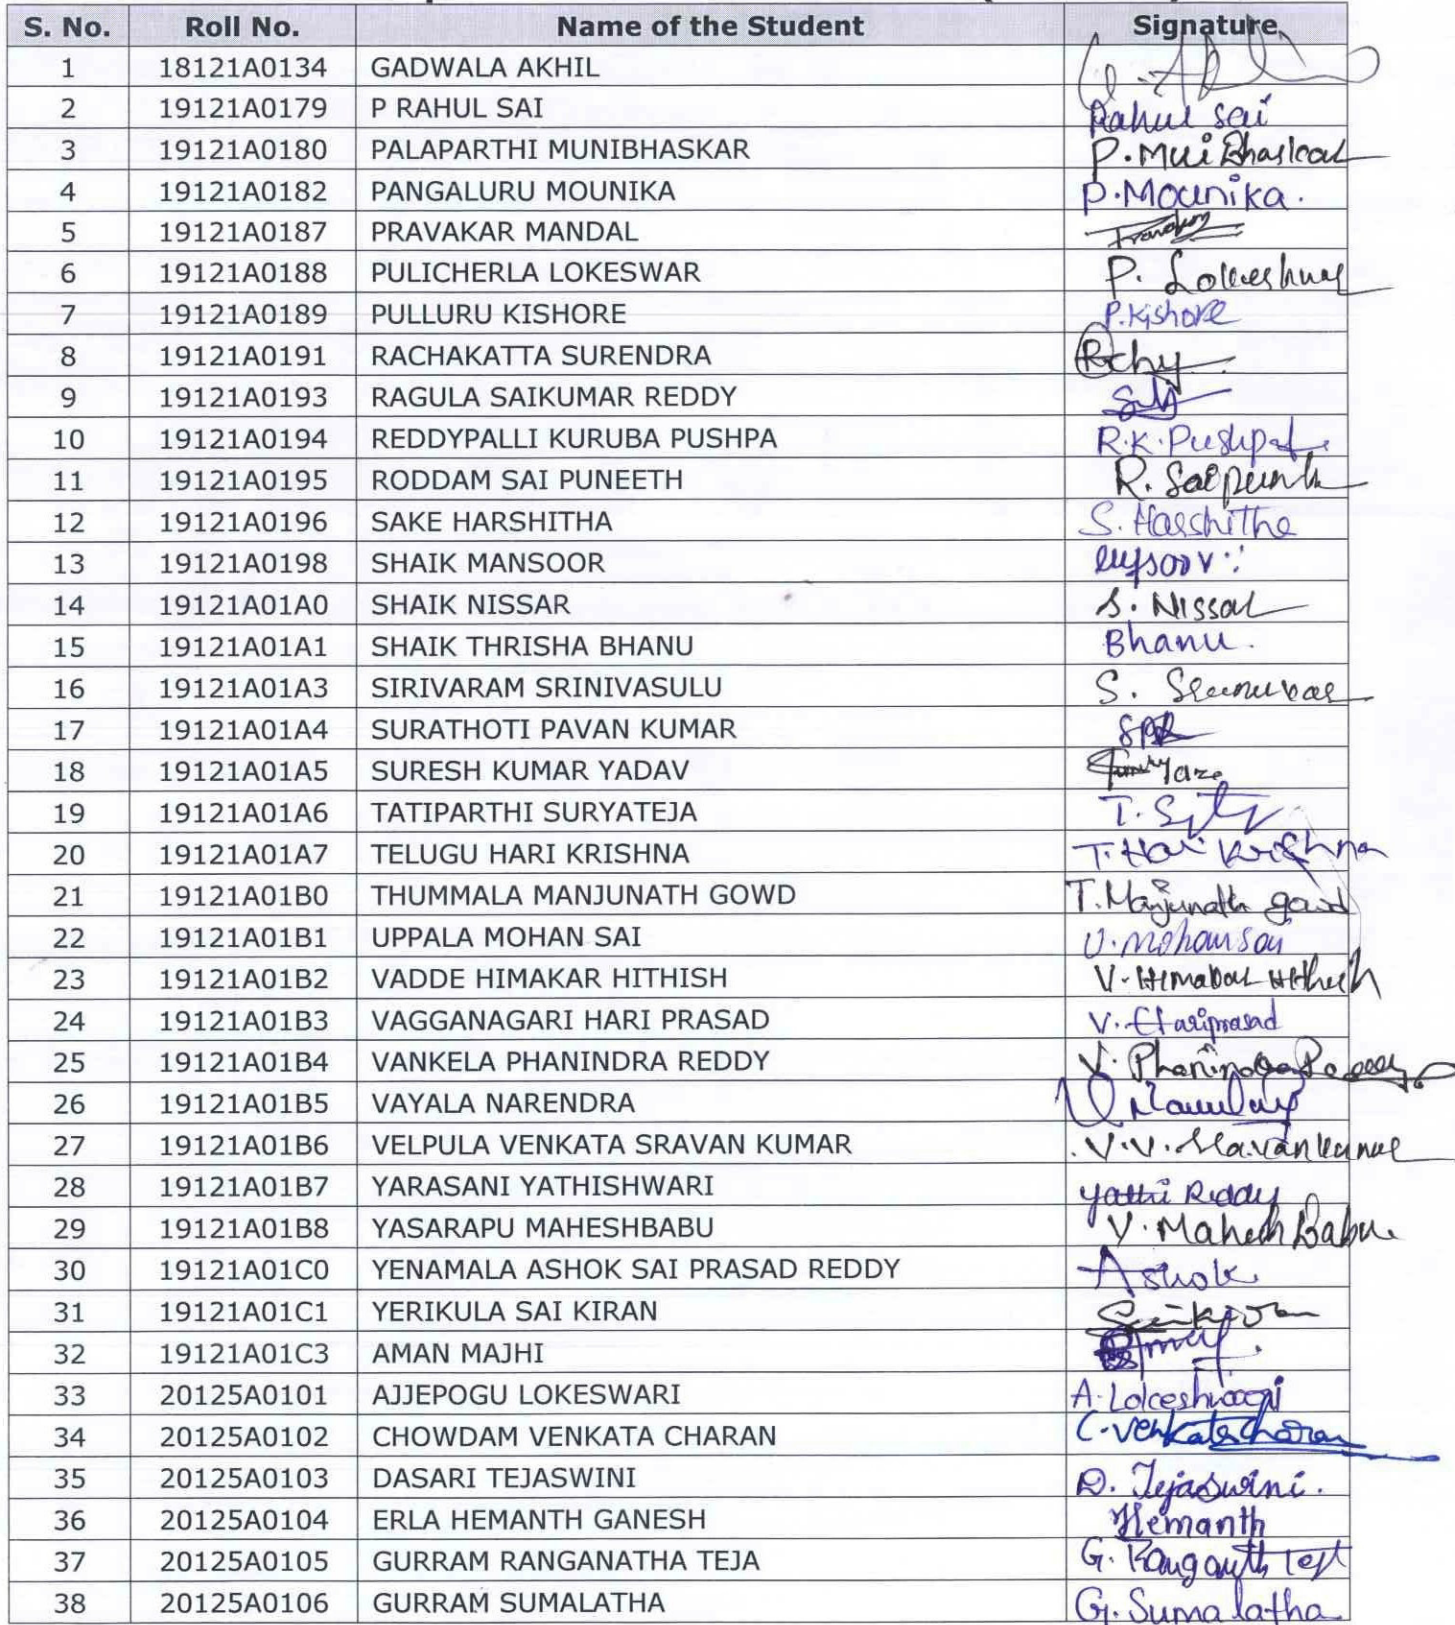 S. No. Roll No. Name of the Student Signature
1 18121A0134 GADWALA AKHIL
2 19121A0179 P RAHUL SAI Rahul sai
3 19121A0180 PALAPARTHI MUNIBHASKAR P. Mui Bhaskar
4 19121A0182 PANGALURU MOUNIKA P. Mounika.
5 19121A0187 PRAVAKAR MANDAL
6 19121A0188 PULICHERLA LOKESWAR P. Lokeshwar
7 19121A0189 PULLURU KISHORE P. Kishore
8 19121A0191 RACHAKATTA SURENDRA Rchy
9 19121A0193 RAGULA SAIKUMAR REDDY
10 19121A0194 REDDYPALLI KURUBA PUSHPA R.K. Pushpa
11 19121A0195 RODDAM SAI PUNEETH R.
12 19121A0196 SAKE HARSHITHA S. Harshitha
13 19121A0198 SHAIK MANSOOR
14 19121A01A0 SHAIK NISSAR S. Nissar
15 19121A01A1 SHAIK THRISHA BHANU Bhanu.
16 19121A01A3 SIRIVARAM SRINIVASULU S.
17 19121A01A4 SURATHOTI PAVAN KUMAR SPK
18 19121A01A5 SURESH KUMAR YADAV
19 19121A01A6 TATIPARTHI SURYATEJA T.
20 19121A01A7 TELUGU HARI KRISHNA T. Hari Krishna
21 19121A01B0 THUMMALA MANJUNATH GOWD T. Manjunath gowd
22 19121A01B1 UPPALA MOHAN SAI U. Mohan sai
23 19121A01B2 VADDE HIMAKAR HITHISH V. Himakar Hithish
24 19121A01B3 VAGGANAGARI HARI PRASAD V. Hariprasad
25 19121A01B4 VANKELA PHANINDRA REDDY V. Phanindra Reddy
26 19121A01B5 VAYALA NARENDRA
27 19121A01B6 VELPULA VENKATA SRAVAN KUMAR V.V. Sravan kumar
28 19121A01B7 YARASANI YATHISHWARI yathi Reddy
29 19121A01B8 YASARAPU MAHESHBABU Y. Mahesh Babu
30 19121A01C0 YENAMALA ASHOK SAI PRASAD REDDY Ashok
31 19121A01C1 YERIKULA SAI KIRAN Saikiran
32 19121A01C3 AMAN MAJHI
33 20125A0101 AJJEPOGU LOKESWARI A. Lokeshwari
34 20125A0102 CHOWDAM VENKATA CHARAN C. Venkata charan
35 20125A0103 DASARI TEJASWINI D. Tejaswini.
36 20125A0104 ERLA HEMANTH GANESH Hemanth
37 20125A0105 GURRAM RANGANATHA TEJA G. Ranganath Teja
38 20125A0106 GURRAM SUMALATHA G. Sumalatha